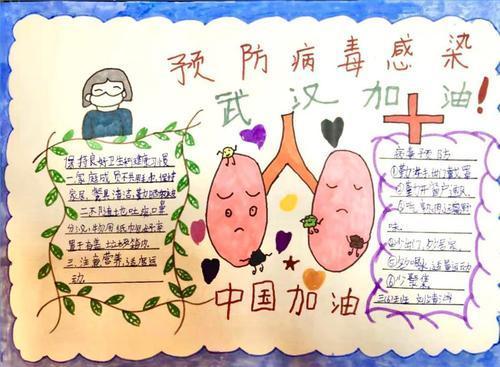 预防病毒感染
武汉加油!
保持良好卫生和健康习惯
一.家庭成员不共用毛巾,保持
家居、餐具清洁,勤
二.不随地吐痰,口鼻
分泌物用纸巾包好,弃
置于有盖垃圾箱内
三.注意营养,适度运
动
病毒预防
①勤洗手出门戴口罩
②勤开窗户通风
味.
④少出门
⑤多喝水,适量运动
⑥少聚集
中国加油